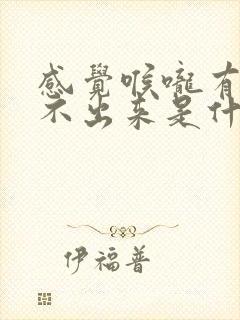 感覺喉嚨有
不出来是什
伊福普